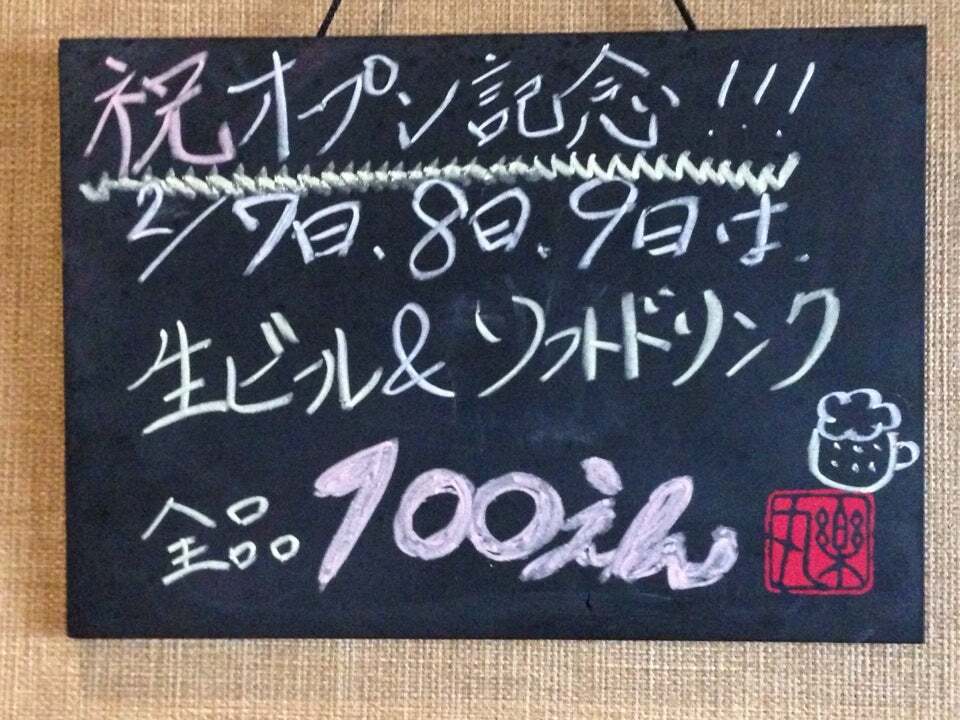 祝オープン記念!!!
2/7日、8日、9日は、
生ビール&ソフトドリンク
全品100えん